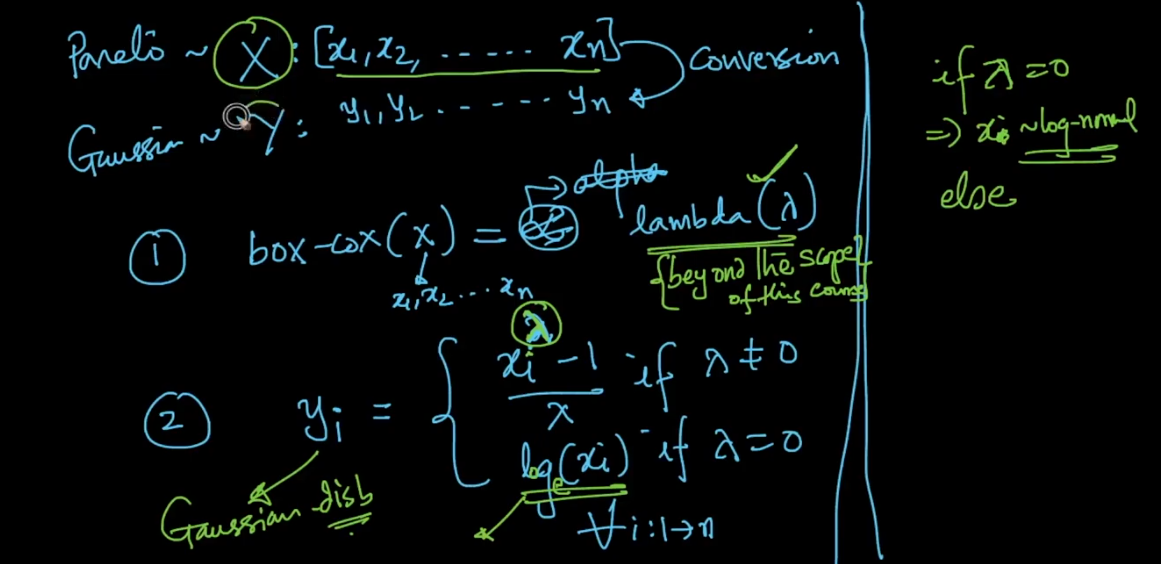 Pareto ~ X : [x₁, x₂, ...... xₙ] conversion
Gaussian ~ Y : y₁, y₂ ....... yₙ
① box-cox(x) = alpha lambda(λ)
x₁, x₂ ... xₙ
{beyond the scope
of this course}
② yᵢ = { (xᵢ^λ - 1) / λ if λ ≠ 0
logₑ(xᵢ) if λ = 0
∀ i : 1→n
Gaussian disb
if λ = 0
=> xᵢ ~ log-normal
else